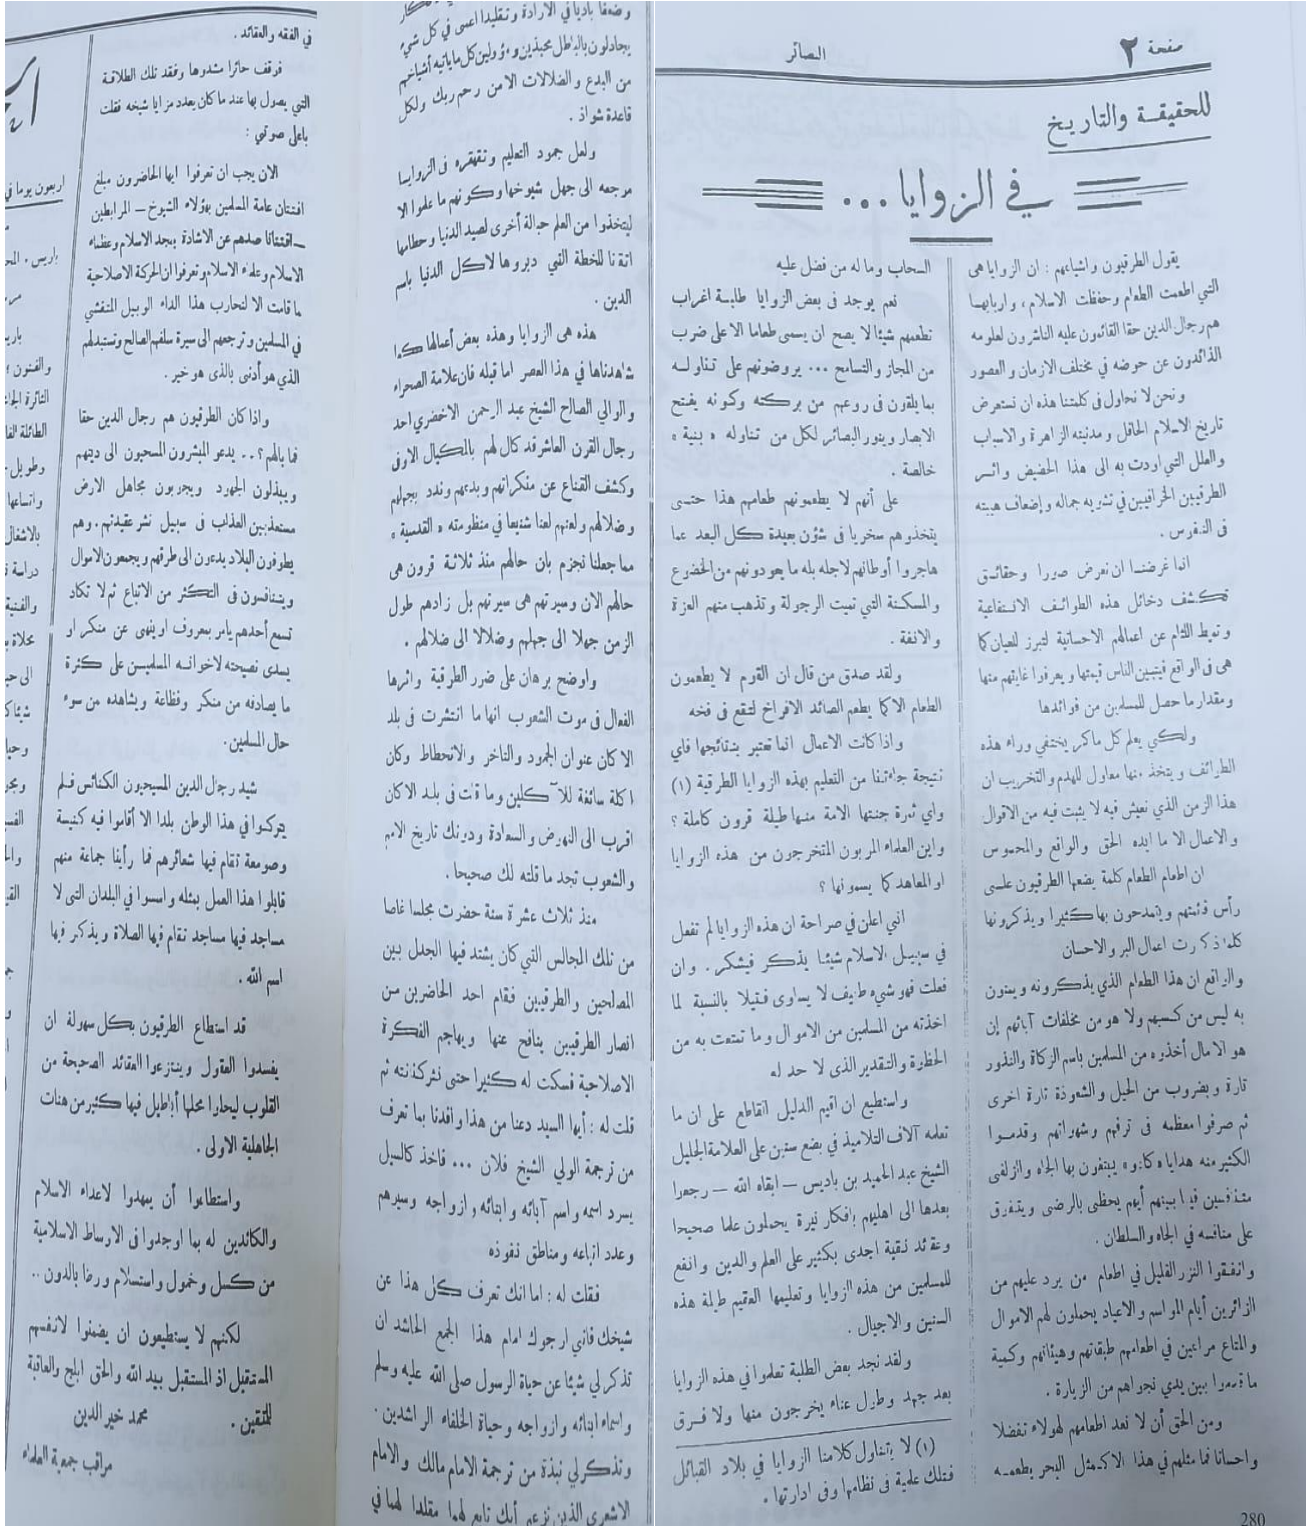 صفحة ٢
البصائر
للحقيقة والتاريخ
في الزوايا ...
يقول الطرقيون واشياعهم : ان الزوايا هى
التي اطعمت الطعام وحفظت الاسلام ، واربابها
هم رجال الدين حقا القائمون عليه الناشرون لعلومه
الذائدون عن حوضه في مختلف الازمان والعصور
ونحن لا نحاول في كلمتنا هذه ان نستعرض
تاريخ الاسلام الحافل ومدنيته الزاهرة والاسباب
والعلل التي اودت به الى هذا الحضيض واثر
الطرقيين الخرافيين في تشويه جماله وإضعاف هيبته
فى النفوس .
انما غرضنا ان نعرض صورا وحقائق
تكشف دخائل هذه الطوائف الانتفاعية
وتميط اللثام عن اعمالهم الاحسانية لتبرز للعيان كما
هى فى الواقع فيتبين الناس قيمتها ويعرفوا غايتهم منها
ومقدار ما حصل للمسلمين من فوائدها
ولكي يعلم كل ماكر يختفي وراء هذه
الطرائف ويتخذ منها معاول للهدم والتخريب ان
هذا الزمن الذي نعيش فيه لا يثبت فيه من الاقوال
والاعمال الا ما ايده الحق والواقع والمحسوس
ان اطعام الطعام كلمة يضعها الطرقيون على
رأس قائمتهم ويتمدحون بها كثيرا ويذكرونها
كلما ذكرت اعمال البر والاحسان
والواقع ان هذا الطعام الذي يذكرونه ويمنون
به ليس من كسبهم ولا هو من مخلفات آبائهم إن
هو الا مال أخذوه من المسلمين باسم الزكاة والنذور
تارة وبضروب من الحيل والشعوذة تارة اخرى
ثم صرفوا معظمه فى ترفهم وشهواتهم وقدموا
الكثير منه هدايا يبتغون بها الجاه والزلفى
متنافسين فيما بينهم أيهم يحظى بالرضى ويتفوق
على منافسه في الجاه والسلطان .
وانفقوا النزر القليل في اطعام من يرد عليهم من
الزائرين أيام المواسم والاعياد يحملون لهم الاموال
والمتاع مراعين في اطعامهم طبقاتهم وهيئاتهم وكمية
ما قدموا بين يدي نجواهم من الزيارة .
ومن الحق أن لا نعد اطعامهم لهولاء تفضلا
واحسانا فما مثلهم في هذا الا كمثل البحر يطعمه
السحاب وما له من فضل عليه
نعم يوجد فى بعض الزوايا طلبة اغراب
تطعمهم شيئا لا يصح ان يسمى طعاما الا على ضرب
من المجاز والتسامح ... يروضونهم على تناوله
بما يلقون فى روعهم من بركته وكونه يفتح
الابصار وينور البصائر لكل من تناوله « بنية »
خالصة .
على أنهم لا يطعمونهم طعامهم هذا حتى
يتخذوهم سخريا فى شؤن بعيدة كل البعد عما
هاجروا أوطانهم لاجله بله ما يعودونهم من الخضوع
والمسكنة التي تميت الرجولة وتذهب منهم العزة
والانفة .
ولقد صدق من قال ان القوم لا يطعمون
الطعام الا كما يطعم الصائد الافراخ لتقع فى فخه
واذا كانت الاعمال انما تعتبر بنتائجها فاي
نتيجة جاءتنا من التعليم بهذه الزوايا الطرقية (١)
واي ثمرة جنتها الامة منها طيلة قرون كاملة ؟
واين العلماء المربون المتخرجون من هذه الزوايا
او المعاهد كما يسمونها ؟
انني اعلن في صراحة ان هذه الزوايا لم تفعل
في سبيل الاسلام شيئا يذكر فيشكر . وان
فعلت فهو شيء طفيف لا يساوى فتيلا بالنسبة لما
اخذته من المسلمين من الاموال وما تمتعت به من
الحظوة والتقدير الذى لا حد له
واستطيع ان اقيم الدليل القاطع على ان ما
تعلمه آلاف التلاميذ في بضع سنين على العلامة الجليل
الشيخ عبد الحميد بن باديس – ابقاه الله – رجعوا
بعدها الى اهليهم بافكار نيرة يحملون علما صحيحا
وعقائد نقية اجدى بكثير على العلم والدين وانفع
للمسلمين من هذه الزوايا وتعليمها العقيم طيلة هذه
السنين والاجيال .
ولقد نجد بعض الطلبة تعلموا في هذه الزوايا
بعد جهد وطول عناء يخرجون منها ولا فرق
(١) لا يتناول كلامنا الزوايا في بلاد القبائل
فتلك علمية فى نظامها وفى ادارتها .
280
وضعفا باديا في الارادة وتقليدا اعمى في كل شيء
يجادلون بالباطل محبذين ومؤولين كل ما ياتيه أشياخهم
من البدع والضلالات الا من رحم ربك ولكل
قاعدة شواذ .
ولعل جمود التعليم وتقهقره فى الزوايا
مرجعه الى جهل شيوخها وكونهم ما علموا الا
ليتخذوا من العلم حبالة أخرى لصيد الدنيا وحطامها
اتقانا للخطة التي دبروها لاكل الدنيا باسم
الدين .
هذه هى الزوايا وهذه بعض أعمالها كما
شاهدناها في هذا العصر اما قبله فان علامة الصحراء
والوالي الصالح الشيخ عبد الرحمن الاخضري احد
رجال القرن العاشر قد كال لهم بالمكيال الاوفى
وكشف القناع عن منكراتهم وبدعهم وندد بجهلهم
وضلالهم ولعنهم لعنا شنيعا في منظومته « القدسية »
مما جعلنا نجزم بان حالهم منذ ثلاثة قرون هى
حالهم الان وسيرتهم هى سيرتهم بل زادهم طول
الزمن جهلا الى جهلهم وضلالا الى ضلالهم .
واوضح برهان على ضرر الطرقية واثرها
الفعال فى موت الشعوب انها ما انتشرت فى بلد
الا كان عنوان الجمود والتاخر والانحطاط وكان
اكلة سائغة للآكلين وما قلت فى بلد الا كان
اقرب الى النهوض والسعادة ودونك تاريخ الامم
والشعوب تجد ما قلته لك صحيحا .
منذ ثلاث عشرة سنة حضرت مجلسا غاصا
من تلك المجالس التي كان يشتد فيها الجدل بين
المصلحين والطرقيين فقام احد الحاضرين من
انصار الطرقيين ينافح عنها ويهاجم الفكرة
الاصلاحية فسكت له كثيرا حتى نثر كنانته ثم
قلت له : أيها السيد دعنا من هذا وافدنا بما تعرف
من ترجمة الولي الشيخ فلان ... فاخذ كالسيل
يسرد اسمه واسم آبائه وابنائه وازواجه وسيرهم
وعدد اتباعه ومناطق نفوذه
فقلت له : اما انك تعرف كل هذا عن
شيخك فاني ارجوك امام هذا الجمع الحاشد ان
تذكر لي شيئا عن حياة الرسول صلى الله عليه وسلم
واسماء ابنائه وازواجه وحياة الخلفاء الراشدين .
وتذكر لي نبذة من ترجمة الامام مالك والامام
الاشعري الذين تزعم أنك تابع لهما مقلدا لهما في
في الفقه والعقائد .
فوقف حائرا مشدوها وفقد تلك الطلاقة
التي يصول بها عند ما كان يعدد مزايا شيخه فقلت
باعلى صوتي :
الان يجب ان تعرفوا ايها الحاضرون مبلغ
افتتان عامة المسلمين بهؤلاء الشيوخ – المرابطين
– افتتانا صدهم عن الاشادة بمجد الاسلام وعظماء
الاسلام وعلماء الاسلام وتعرفوا ان الحركة الاصلاحية
ما قامت الا لتحارب هذا الداء الوبيل المتفشي
في المسلمين وترجعهم الى سيرة سلفهم الصالح وتستبدلهم
الذى هو أدنى بالذى هو خير .
واذا كان الطرقيون هم رجال الدين حقا
فما بالهم ؟ .. يدعو المبشرون المسحيون الى دينهم
ويبذلون الجهود ويجوبون مجاهل الارض
مستعذبين العذاب فى سبيل نشر عقيدتهم . وهم
يطوفون البلاد يدعون الى طرقهم ويجمعون الاموال
ويتنافسون فى التكثر من الاتباع ثم لا تكاد
تسمع أحدهم يامر بمعروف او ينهى عن منكر او
يسدى نصيحته لاخوانه المسلمين على كثرة
ما يصادفه من منكر وفظاعة ويشاهده من سوء
حال المسلمين .
شيد رجال الدين المسيحيون الكنائس فلم
يتركوا في هذا الوطن بلدا الا أقاموا فيه كنيسة
وصومعة تقام فيها شعائرهم فما رأينا جماعة منهم
قابلوا هذا العمل بمثله واسسوا في البلدان التى لا
مساجد فيها مساجد تقام فيها الصلاة ويذكر فيها
اسم الله .
قد استطاع الطرقيون بكل سهولة ان
يفسدوا العقول وينتزعوا العقائد الصحيحة من
القلوب ليحلوا محلها أباطيل فيها كثير من هنات
الجاهلية الاولى .
واستطاعوا أن يمهدوا لاعداء الاسلام
والكائدين له بما اوجدوا فى الاوساط الاسلامية
من كسل وخمول واستسلام ورضا بالدون ..
لكنهم لا يستطيعون ان يضمنوا لانفسهم
المستقبل اذ المستقبل بيد الله والحق ابلج والعاقبة
للمتقين .
محمد خير الدين
مراقب جمعية العلماء
اربعون يوما في
باريس
والفنون
الطائلة
وطويل
واتساعها
بالاشغال
دراسة
الى